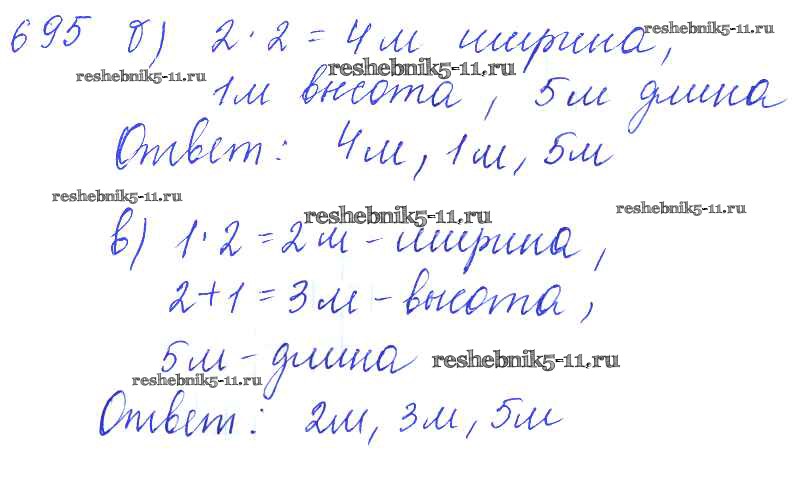 695 б) 2·2 = 4м ширина,
1м высота, 5м длина
Ответ: 4м, 1м, 5м
в) 1·2 = 2м - ширина,
2+1 = 3м - высота,
5м - длина
Ответ: 2м, 3м, 5м
reshebnik5-11.ru
reshebnik5-11.ru
reshebnik5-11.ru
reshebnik5-11.ru
reshebnik5-11.ru
reshebnik5-11.ru
reshebnik5-11.ru
reshebnik5-11.ru